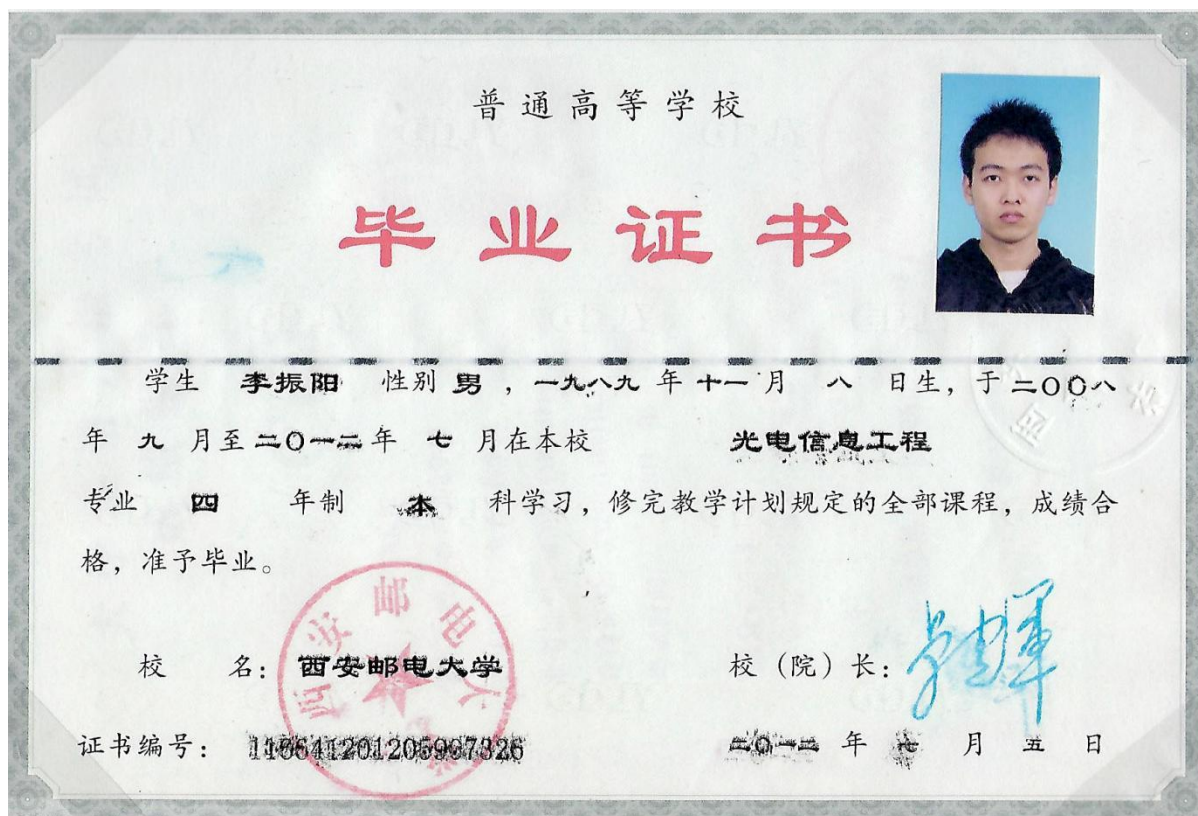 普通高等学校
毕业证书
学生 李振阳 性别 男 , 一九八九 年 十一 月 八 日生, 于 二〇〇八
年 九 月至 二〇一二 年 七 月在本校 光电信息工程
专业 四 年制 本 科学习, 修完教学计划规定的全部课程, 成绩合
格, 准予毕业。
西安邮电大学
校 名: 西安邮电大学 校(院)长:
证书编号: 116641201205997326 二〇一二 年 七 月 五 日